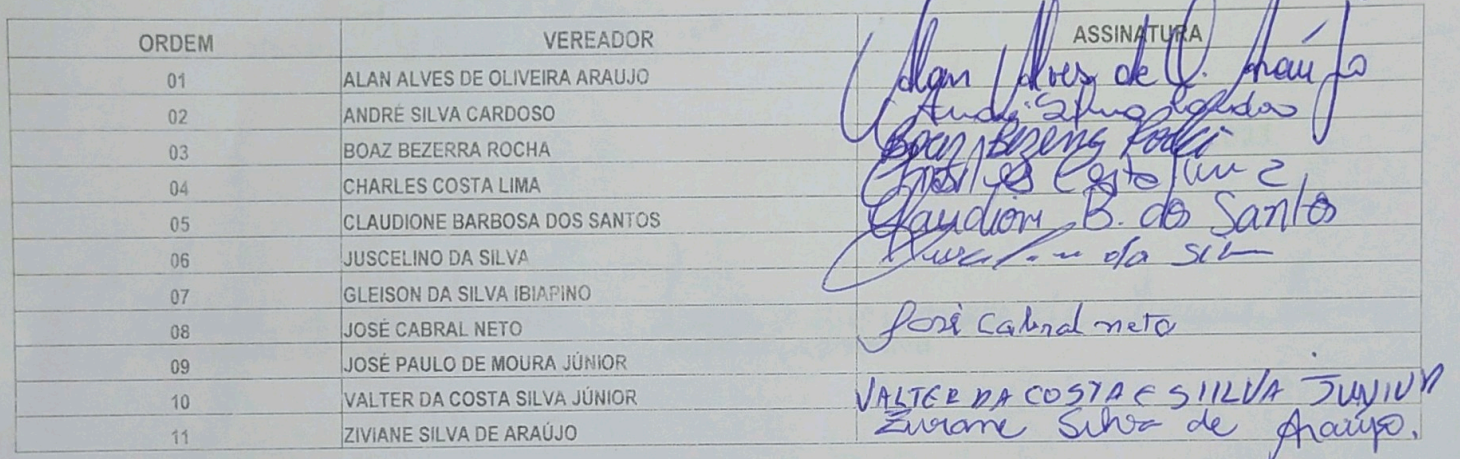 ORDEM VEREADOR ASSINATURA
01 ALAN ALVES DE OLIVEIRA ARAUJO Alan Alves de O. Araújo
02 ANDRÉ SILVA CARDOSO André Silva Cardoso
03 BOAZ BEZERRA ROCHA Boaz Bezerra Rocha
04 CHARLES COSTA LIMA Charles Costa Lima
05 CLAUDIONE BARBOSA DOS SANTOS Claudion B. dos Santos
06 JUSCELINO DA SILVA da
07 GLEISON DA SILVA IBIAPINO
08 JOSÉ CABRAL NETO José Cabral neto
09 JOSÉ PAULO DE MOURA JÚNIOR
10 VALTER DA COSTA SILVA JÚNIOR VALTER DA COSTA E SIILVA JUNIUR
11 ZIVIANE SILVA DE ARAÚJO Ziviane Silva de Araújo.